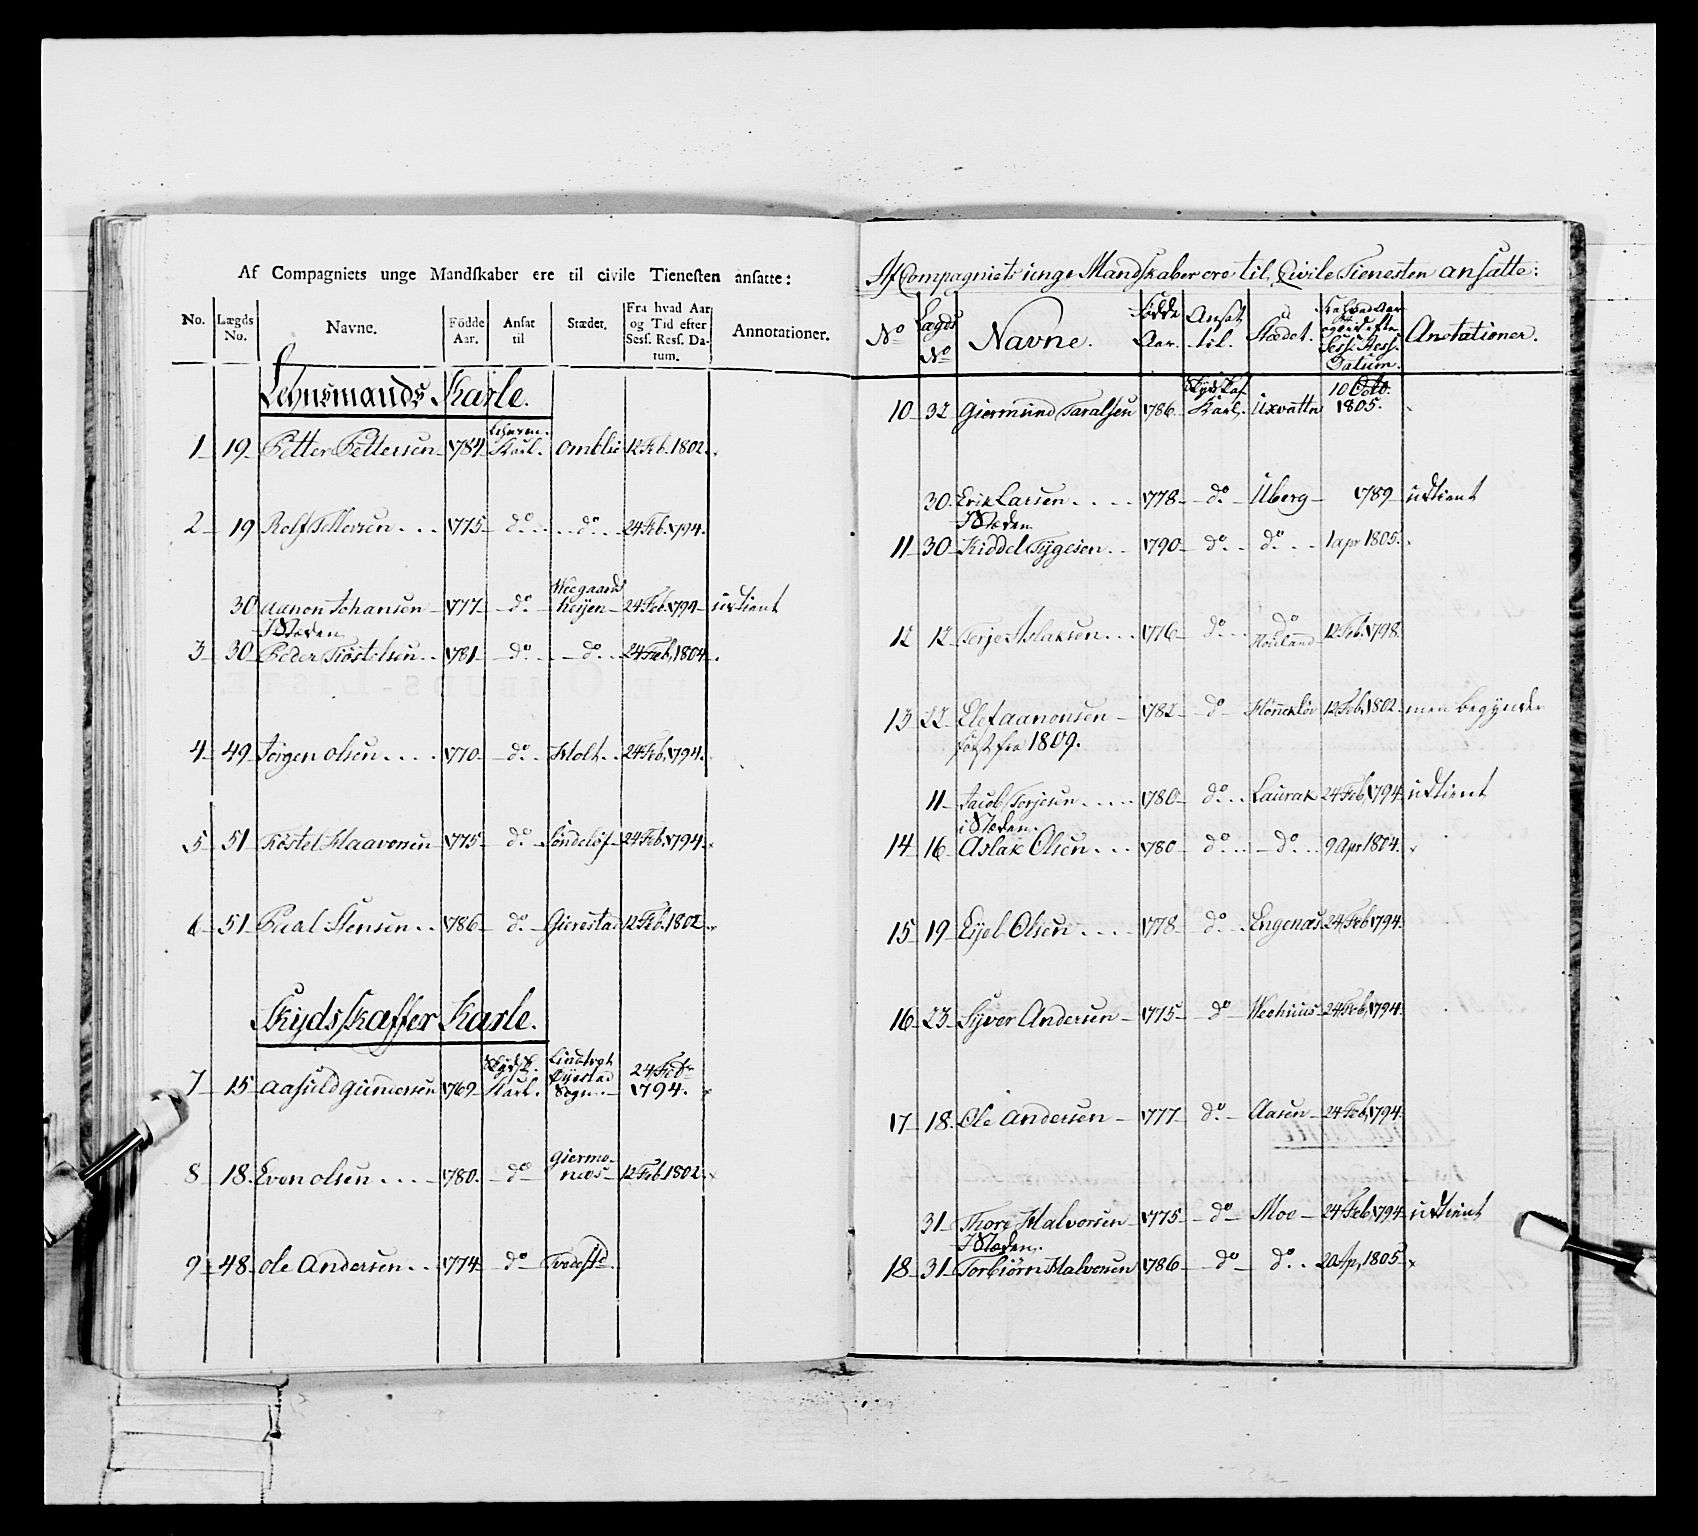 Af Compagniets unge Mandskaber ere til civile Tienesten ansatte:
No. Lægds No. Navne. Födde Aar. Ansat til Stædet. Fra hvad Aar og Tid efter Sess. Ress. Datum. Annotationer.
Lehnsmands Karle.
1 19 Petter Pettersen 1784 Lehnsm. Karl. Omblie 12 Feb. 1802.
2 19 Rolf Tellevsen 1775 do do 24 Feb. 1794.
30 Aanon Johansen 1777 do Weegaards heijen 24 Feb. 1794 udtient
I Stæden
3 30 Peder Kiöstelsen 1781 do do 24 Feb. 1804
4 49 Jörgen Olsen 1770 do Holt 24 Feb. 1794.
5 51 Kiöstel Haavorsen 1775 do Söndelöf 24 Feb. 1794.
6 51 Paal Stensen 1786 do Gierestad 12 Feb. 1802
Skyds skaffer Karle.
7 15 Aasuld Gundersen 1769 Skydsk. Karl. Lindtvet Öyestad Sogn 24 Feb. 1794.
8 18 Even Olsen 1780 do Giermonæs 12 Feb. 1802
9 48 Ole Andersen 1774 do Tvedest.
Af Compagniets unge Mandskaber ere til Civile Tienesten ansatte:
No Lægds No Navne. Födde Aar. Ansat til. Stædet. Fra hvad Aar og Tid efter Sess. Ress. Datum. Anotationer.
10 32 Giermund Taralsen 1786 Skyds Skaf. Karl. Uxvatn 10 Octo. 1805.
30 Erik Larsen 1778 do Uberg 1789 udtient
I Stæden
11 30 Kiddel Tygesen 1790 do do 1 apr 1805.
12 12 Terje Aslaksen 1776 do do Houland 12 Feb. 1798.
13 22 Elef Aanonsen 1782 do Hönneklöv 12 Feb. 1802 men begynder
först fra 1809.
11 Jacob Terjesen 1780 do Laurak 24 Feb. 1794 udtient
i Stæden
14 16 Aslak Olsen 1780 do do 9 Apr 1804.
15 19 Eijel Olsen 1778 do Engenæs 24 Feb 1794.
16 23 Syver Andersen 1775 do Weehuus 24 Feb. 1794.
17 18 Ole Andersen 1777 do Aasen 24 Feb. 1794.
31 Thore Halvorsen 1775 do Moe 24 Feb. 1794 udtient
I Stæden
18 31 Torbiörn Halvorsen 1786 do do 20 Ap. 1805